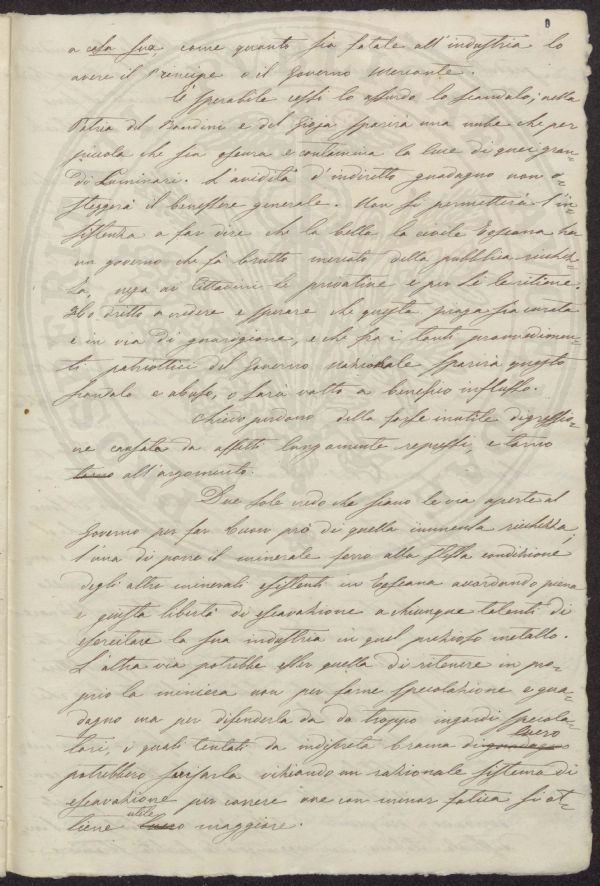 a casa sua come quanto sia fatale all'industria lo
avere il Principe o il Governo mercante.
È sperabile cessi lo assurdo lo scandalo; nella
Patria del Bandini e del Gioja sparirà una nube che per
piccola che sia oscura e contamina la luce di quei gran=
di Luminari. L'avidità d'indiretto guadagno non o=
steggerà il benessere generale. Non si permetterà l'in=
sistenza a far dire che la bella la civile Toscana ha
un governo che fà brutto mercato della pubblica ricchez=
za, nega ai Cittadini le privative e per se le ritiene.
Ho dritto a vedere e sperare che questa piaga sia curata
e in via di guarigione, e che fra i tanti provvedimen=
ti patriottici del Governo nazionale sparirà questo
scandalo e abuso, o sarà volto a benefico influsso.
Chiedo perdono della forse inutile digressio=
ne causata da affetti lungamente repressi, e torno
torno all'argomento.
Due sole vedo che siano le vie aperte al
Governo per far buon prò di quella immensa ricchezza,
l'una di porre il minerale ferro alla stessa condizione
degli altri minerali esistenti in Toscana accordando piena
e giusta libertà di escavazione a chiunque talenti di
esercitare la sua industria in quel prezioso metallo.
L'altra via potrebbe esser quella di ritenere in pro=
prio la miniera non per farne speculazione e gua=
dagno ma per difenderla da da troppo ingordi specula=
tori, i quali tentati da indiscreta brama di guadagno lucro
potrebbero viziando un razionale sistema di
escavazione per correre ove con minor fatica si ot=
tiene lucro utile maggiore.